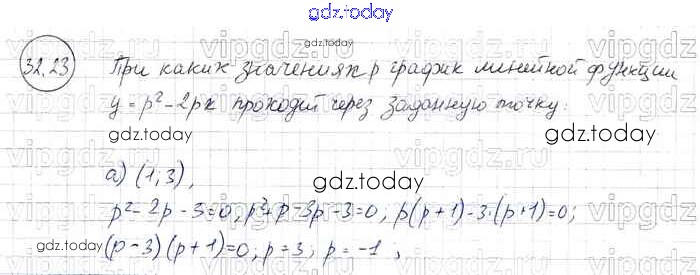 gdz.today
32.23
При каких значениях p график линейной функции
y = p² - 2px проходит через заданную точку:
gdz.today
gdz.today
gdz.today
а) (1; 3),
gdz.today
p² - 2p - 3 = 0; p² + p - 3p - 3 = 0; p(p + 1) - 3·(p + 1) = 0;
gdz.today
(p - 3)(p + 1) = 0; p = 3; p = -1;